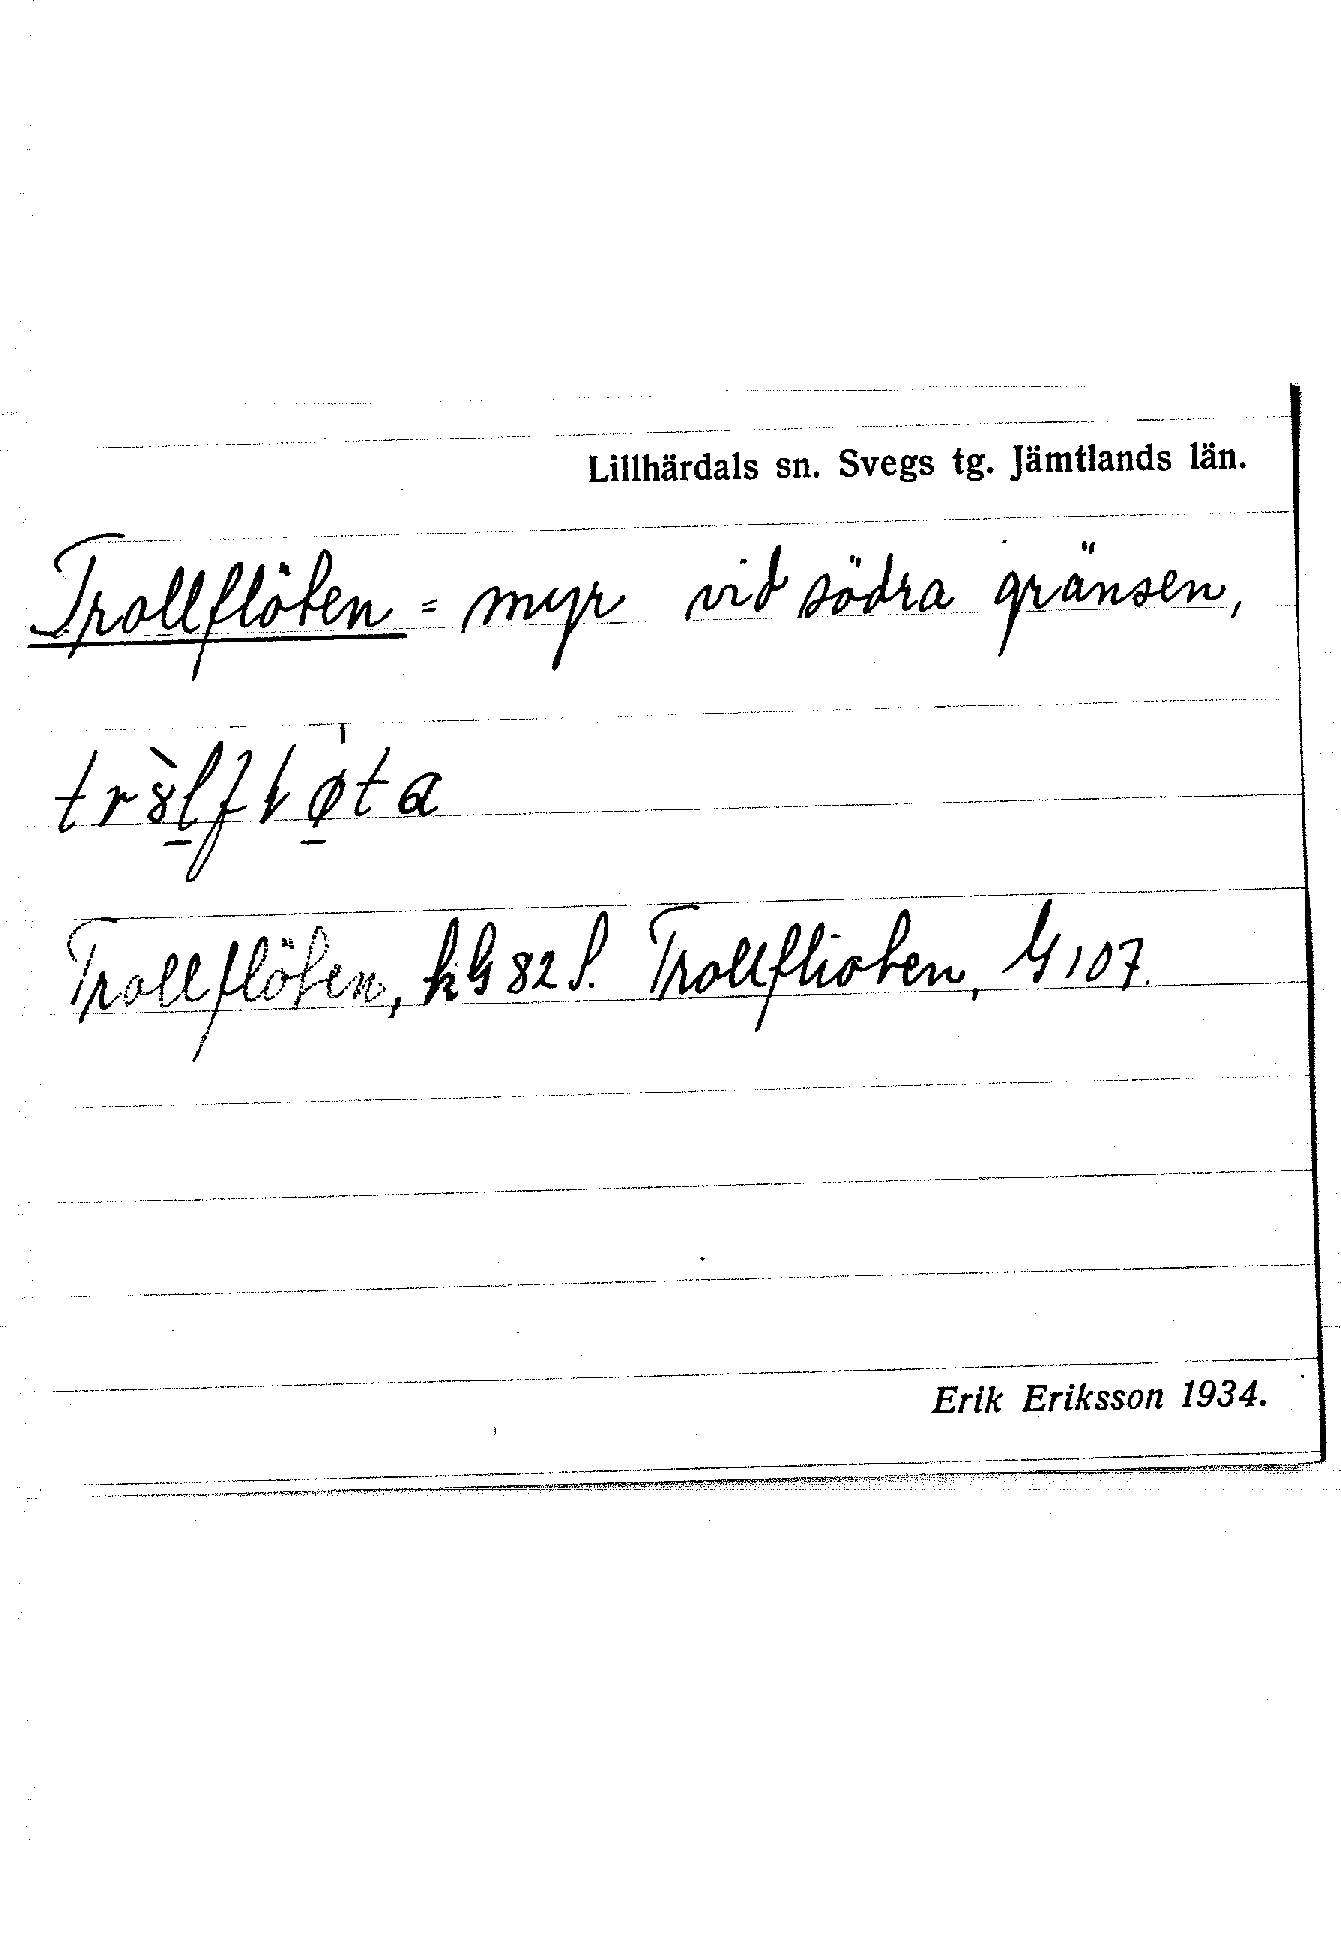 Lillhärdals sn. Svegs tg. Jämtlands län.
Trollflöten = myr vid södra gränsen,
Trollflöten, kG 82 S. Trollflioten, G 107.
Erik Eriksson 1934.